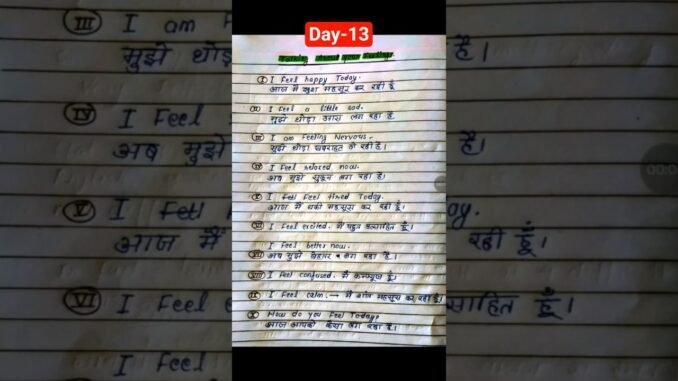 Day-13
I I feel happy Today.
आज मैं खुश महसूस कर रही हूँ
II I feel a little sad.
मुझे थोड़ा उदास लग रहा है
III I am Feeling Nervous.
मुझे थोड़ी घबराहट हो रही है।
IV I Feel relaxed now.
अब मुझे सुकून लग रहा है।
V I feel Feel tired Today.
आज मैं थकी महसूस कर रही हूँ।
VI I Feel excited. मैं बहुत उत्साहित हूँ।
I Feel better now.
VII अब मुझे बेहतर लग रहा है।
VIII I Feel confused. मैं कन्फ्यूज हूँ।
IX I Feel calm. → मैं शांत महसूस कर रही हूँ।
X How do you Feel Today?
आज आपको कैसा लग रहा है।
III I am F
मुझे थोड़
है।
IV I Feel
अब मुझे
है।
V I Feel
ay.
आज मैं
रही हूँ।
VI I Feel
साहित हूँ।
I Feel